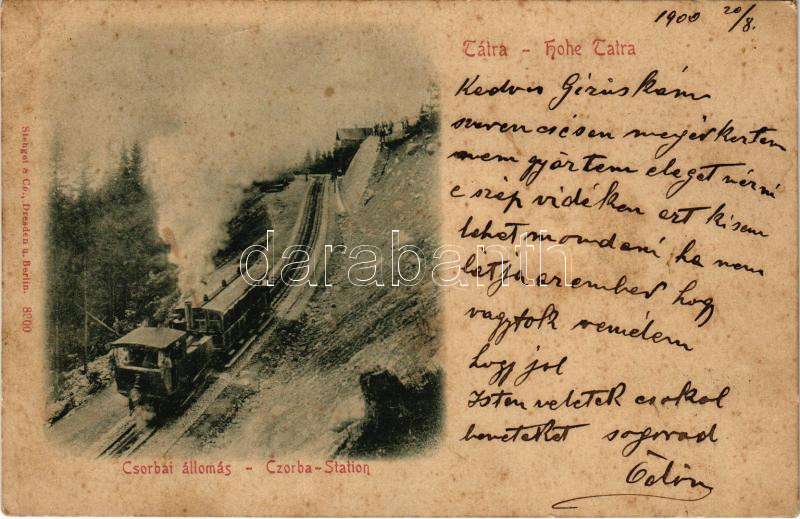 1900 20/8.
Tátra - Hohe Tatra
Kedves Gizuskám
szerencsésen megérkeztem
nem győztem eleget nézni
e szép vidéken ezt kisem
lehet mondani ha nem
látja az ember hogy
vagytok remélem
hogy jol
Isten veletek csokol
beneteket sogorod
Ödön
Csorbai állomás - Czorba-Station
Stengel & Co., Dresden u. Berlin. 8200
darabanth